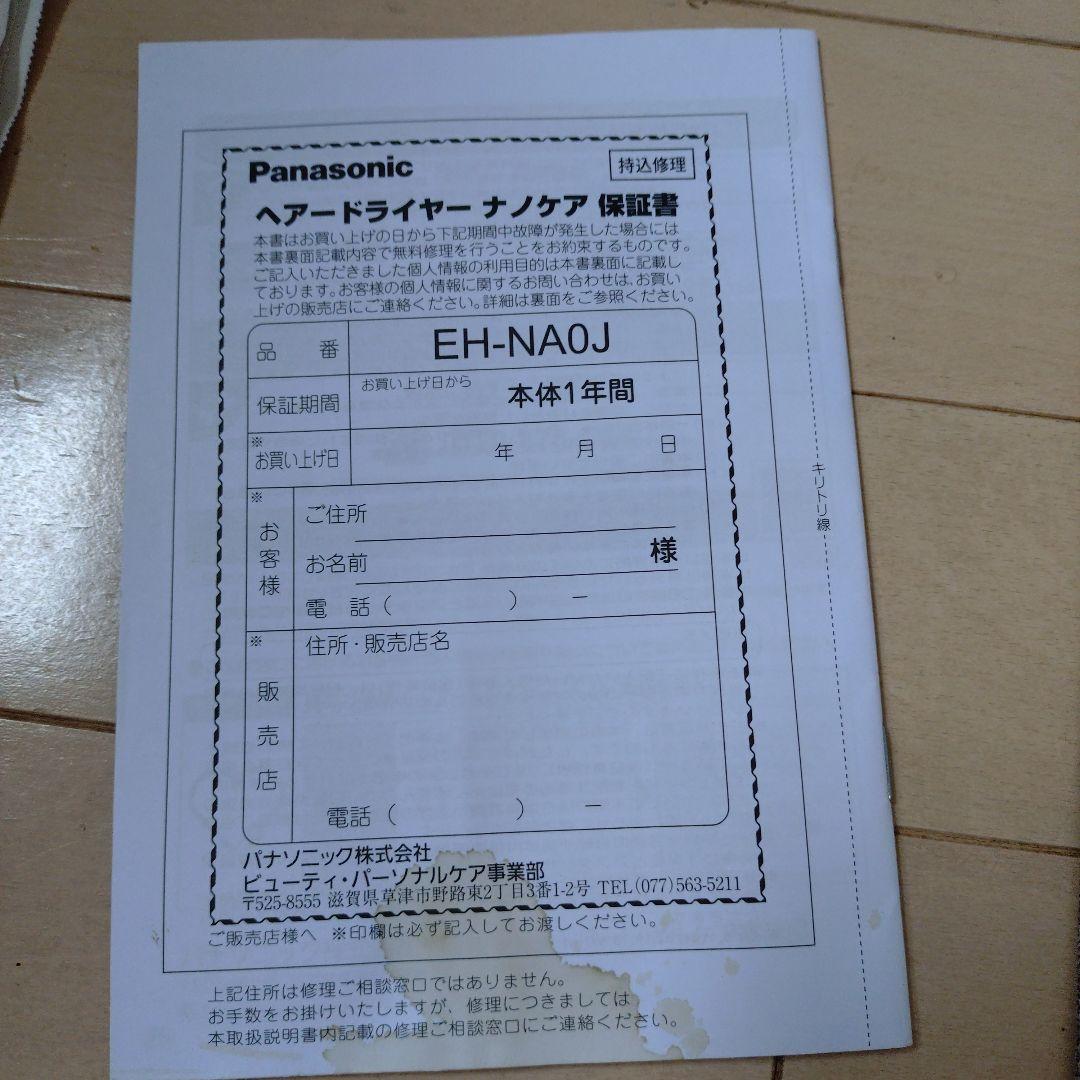 Panasonic
持込修理
ヘアードライヤー ナノケア 保証書
本書はお買い上げの日から下記期間中故障が発生した場合には
本書裏面記載内容で無料修理を行うことをお約束するものです。
ご記入いただきました個人情報の利用目的は本書裏面に記載し
ております。お客様の個人情報に関するお問い合わせは、お買い
上げの販売店にご連絡ください。詳細は裏面をご参照ください。
品番 EH-NA0J
保証期間 お買い上げ日から 本体1年間
※お買い上げ日 年 月 日
※お客様
ご住所
お名前 様
電話( ) −
※販売店
住所・販売店名
電話( ) −
パナソニック株式会社
ビューティ・パーソナルケア事業部
〒525-8555 滋賀県草津市野路東2丁目3番1-2号 TEL(077)563-5211
ご販売店様へ ※印欄は必ず記入してお渡しください。
上記住所は修理ご相談窓口ではありません。
お手数をお掛けいたしますが、修理につきましては
本取扱説明書内記載の修理ご相談窓口にご連絡ください。
キリトリ線